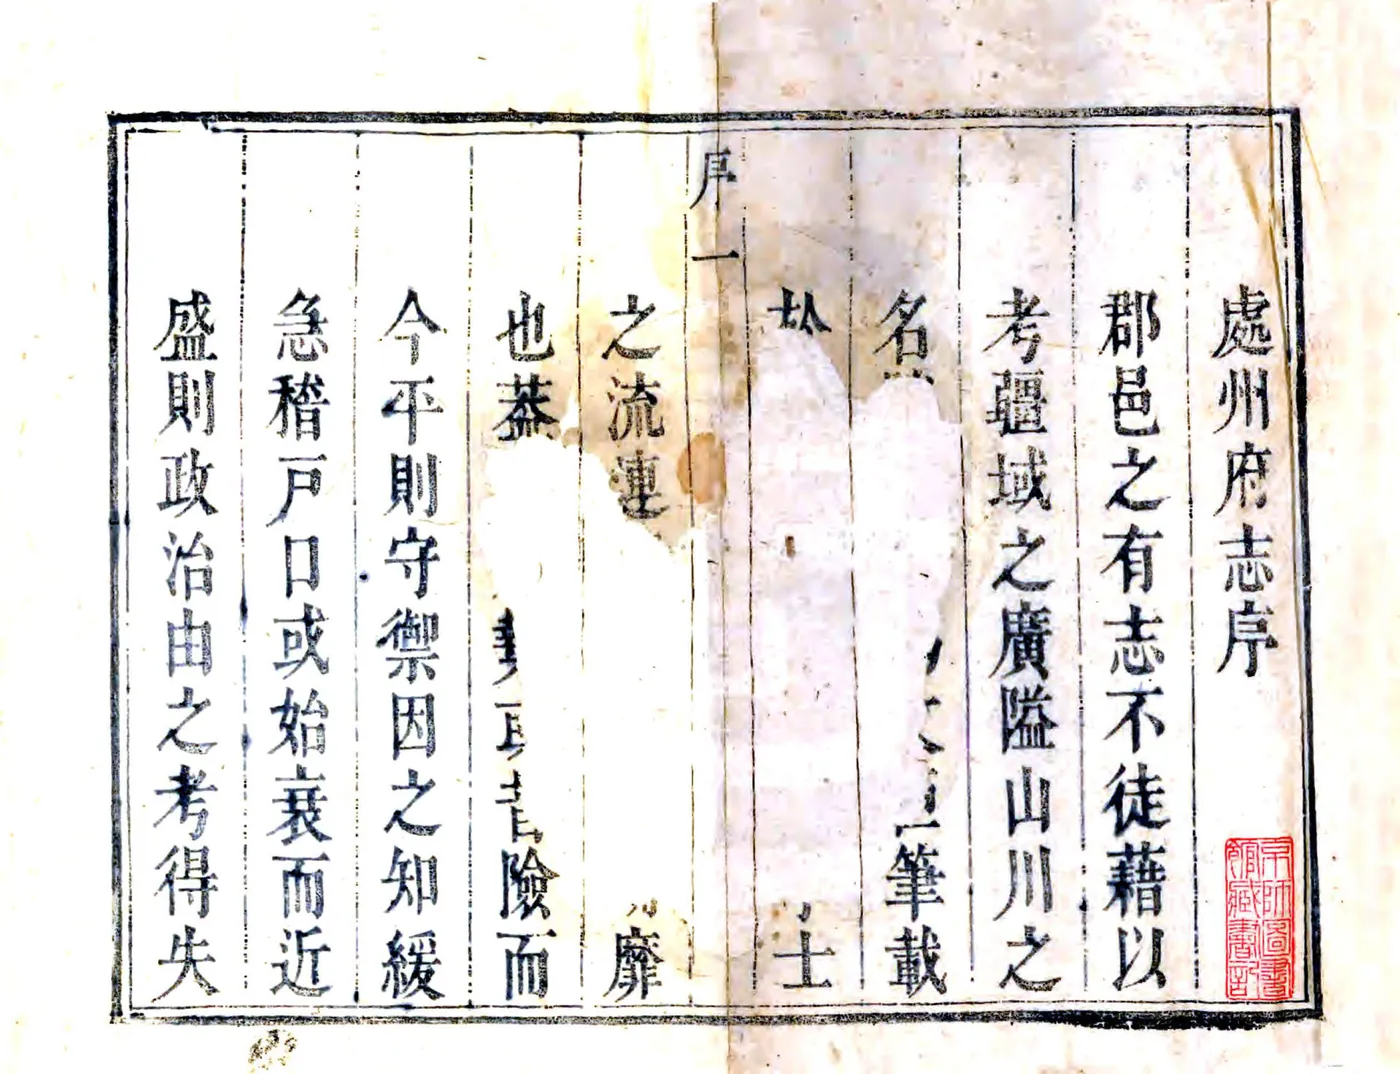 處州府志序
郡邑之有志不徒藉以
考疆域之廣隘山川之
名筆載
於士
序一
之流連靡
也葢險而
今平則守禦因之知緩
急稽戸口或始衰而近
盛則政治由之考得失
京師圖書館藏書記